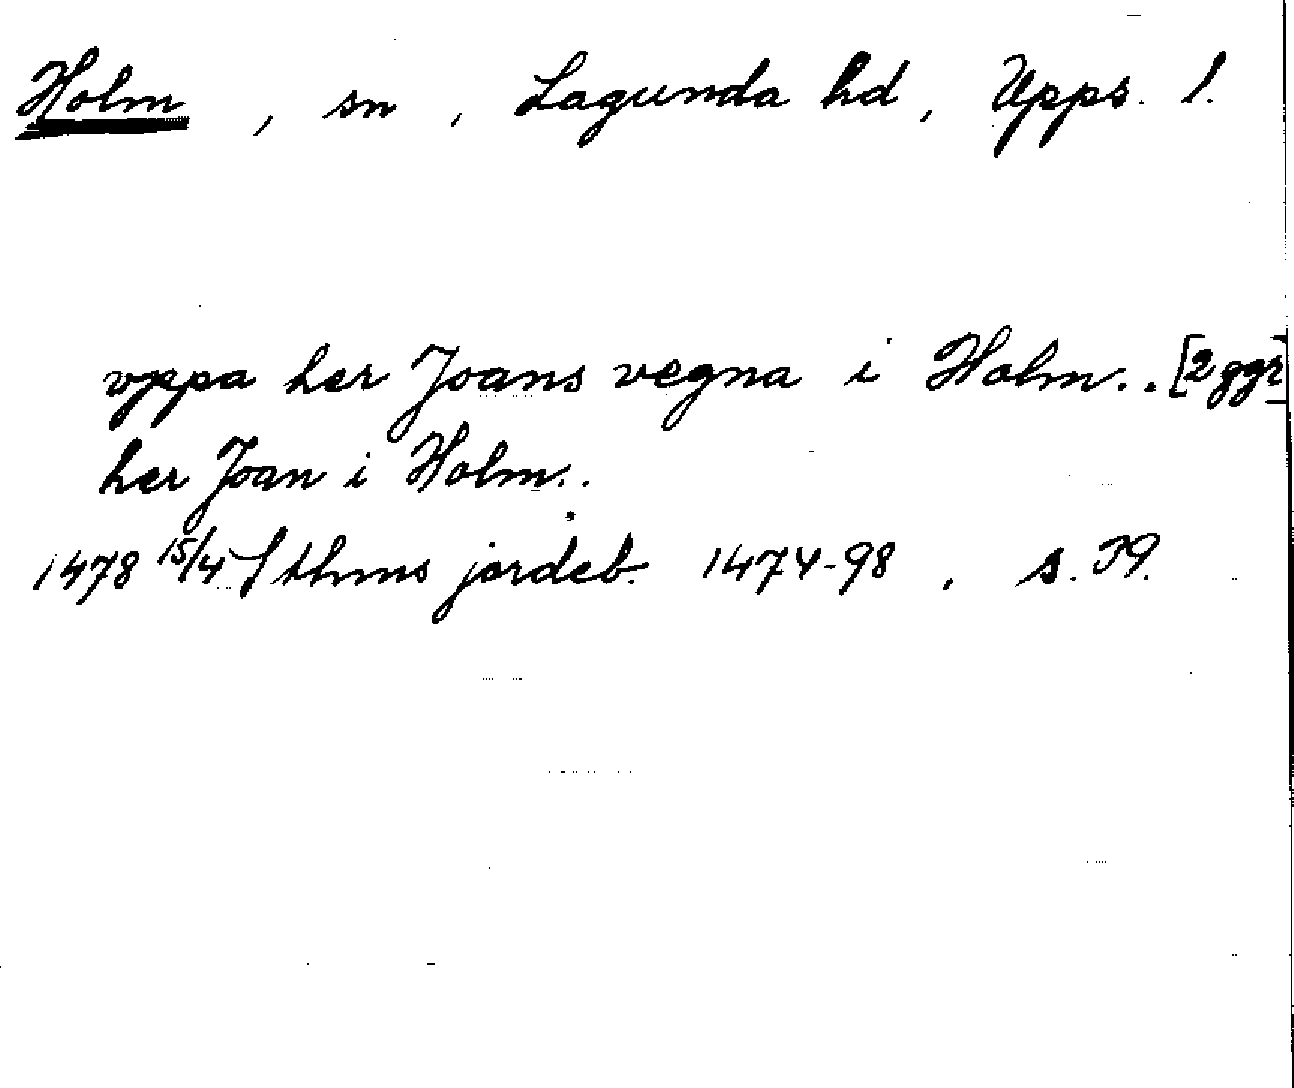 Holm, sn, Lagunda hd, Upps. l.
vppa her Joans vegna i Holm.. [2 ggr]
her Joan i Holm..
1478 15/4 Sthms jordeb. 1474-98, s. 79.